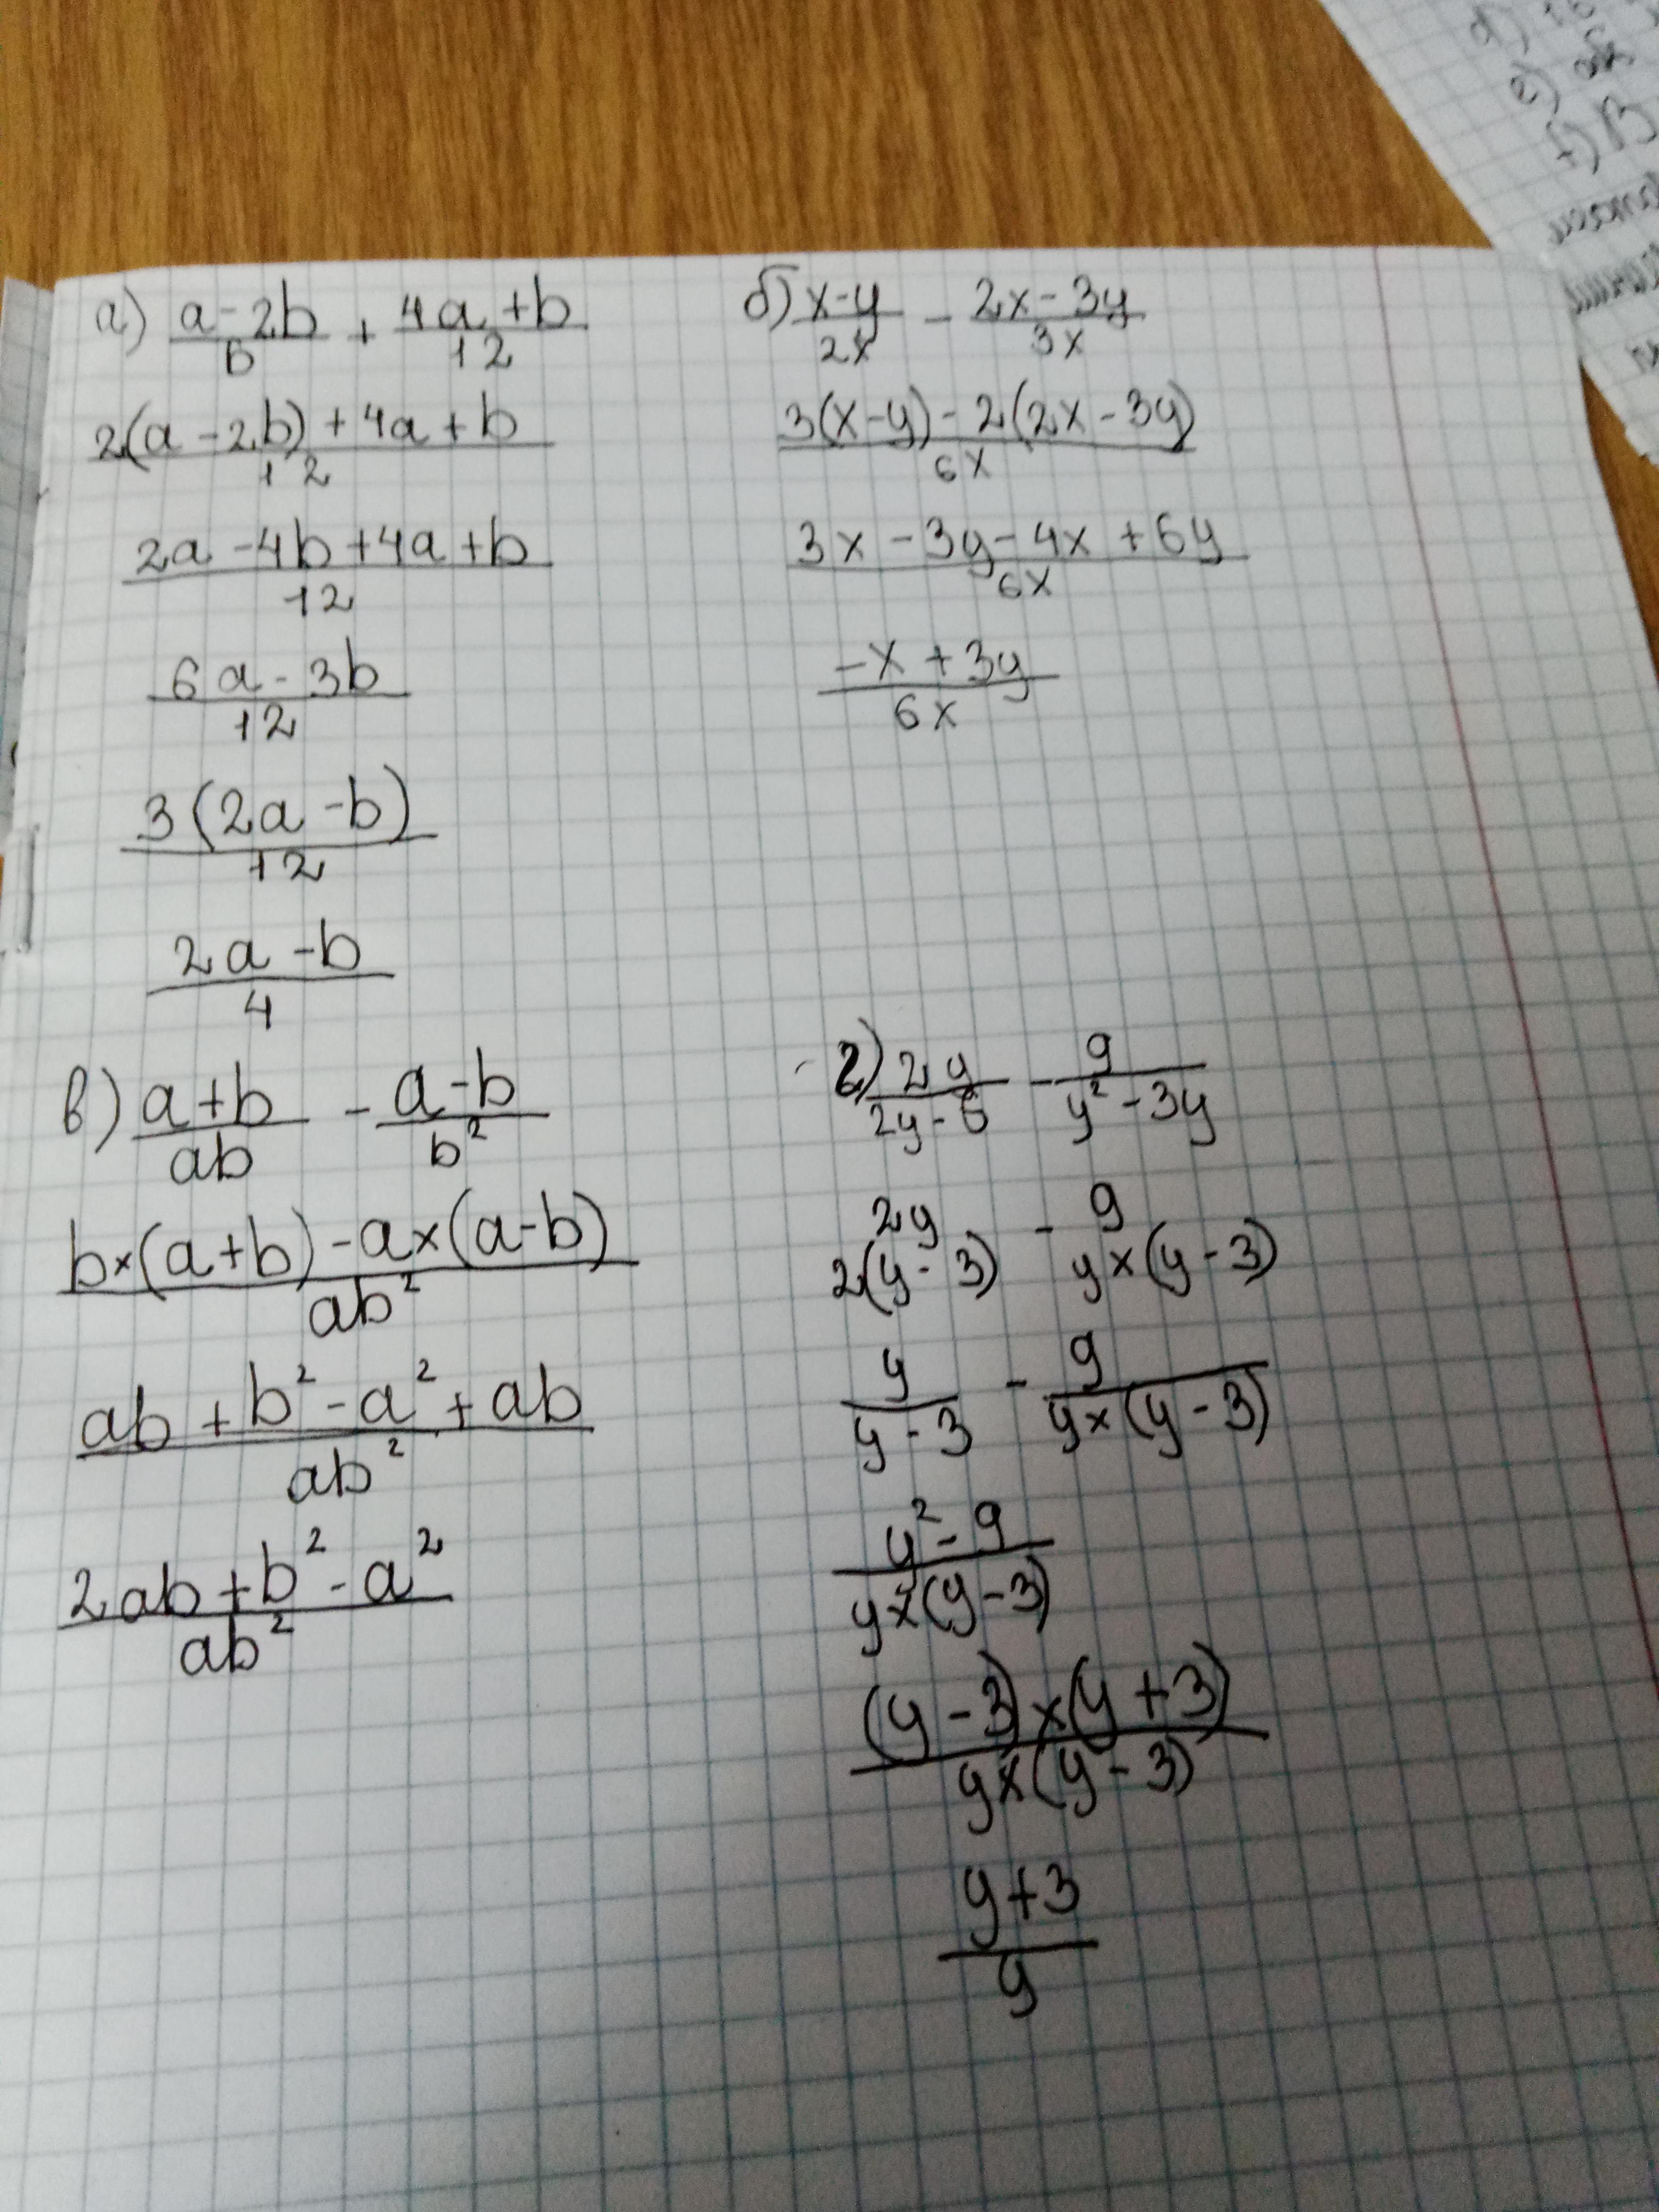 а) (a-2b)/6 + (4a+b)/12
(2(a-2b)+4a+b)/12
(2a-4b+4a+b)/12
(6a-3b)/12
(3(2a-b))/12
(2a-b)/4
б) (x-y)/2x - (2x-3y)/3x
(3(x-y)-2(2x-3y))/6x
(3x-3y-4x+6y)/6x
(-x+3y)/6x
в) (a+b)/ab - (a-b)/b²
(b×(a+b)-a×(a-b))/ab²
(ab+b²-a²+ab)/ab²
(2ab+b²-a²)/ab²
г) 2y/(2y-6) - 9/(y²-3y)
2y/2(y-3) - 9/y×(y-3)
y/(y-3) - 9/y×(y-3)
(y²-9)/y×(y-3)
(y-3)×(y+3)/y×(y-3)
(y+3)/y